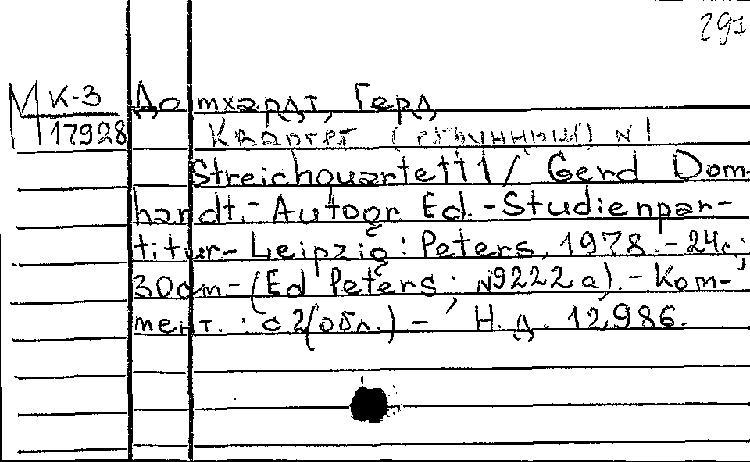 291
М К-3 Домхардт, Герд
17928 Квартет (струнный) №1
Streichquartett 1 / Gerd Dom-
hardt.- Autogr Ed.-Studienpar-
titur- Leipzig: Peters, 1978.- 24с.;
30cm-(Ed Peters: N9222a).- Ком-
мент.: с 2(обл.) - Н.д. 12,986.